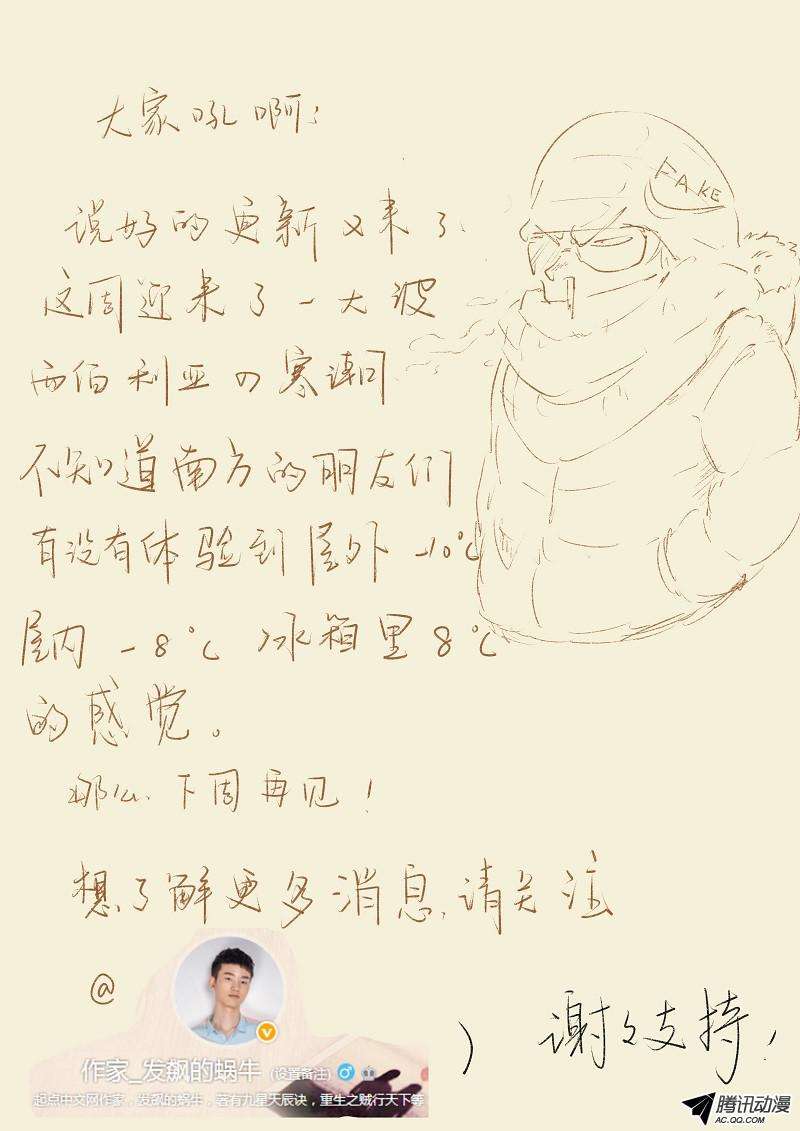 大家吼啊：
FAKE
说好的更新又来了.
这周迎来了一大波
西伯利亚の寒潮
不知道南方的朋友们
有没有体验到屋外 -10℃
屋内 -8℃ 冰箱里 8℃
的感觉。
那么.下周再见！
想了解更多消息,请关注
@
作家_发飙的蜗牛 (设置备注)
起点中文网作家，发飙的蜗牛，著有九星天辰诀，重生之贼行天下等
) 谢々支持！
腾讯动漫
AC.QQ.COM